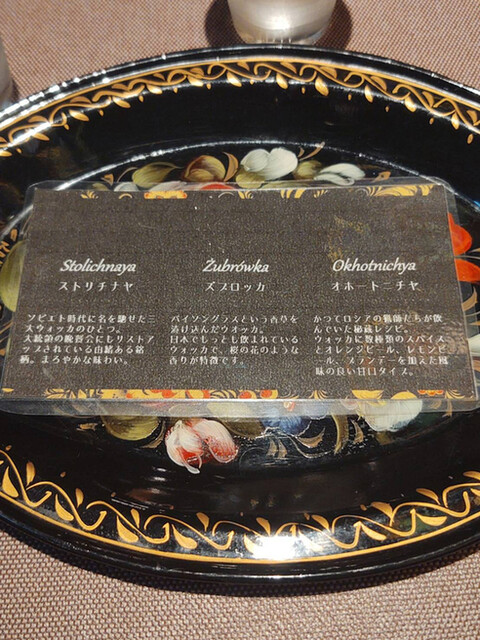 Stolichnaya
ストリチナヤ
ソビエト時代に名を馳せた三
スウォッカのひとつ。
大統領の晩餐会にもリストア
ップされている由緒ある銘
柄。まろやかな味わい。
Żubrówka
ズブロッカ
バイソングラスという香草を
漬け込んだウオッカ。
日本でもっとも飲まれている
ウォッカで、桜の花のような
香りが特徴です。
Okhotnichya
オホートニチヤ
かつてロシアの猟師たちが飲
んでいた秘蔵レシピ。
ウォッカに数種類のスパイス
とオレンジピール、レモンピ
ール、ブランデーを加えた風
味の良い甘口タイプ。